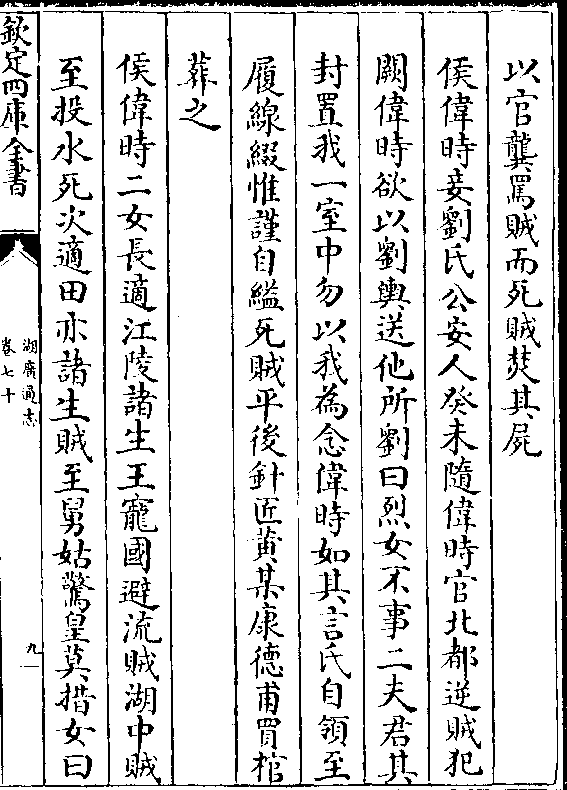 以官龔罵賊而死賊焚其屍
侯偉時妾劉氏公安人癸未隨偉時官北都逆賊犯
闕偉時欲以劉輿送他所劉曰烈女不事二夫君其
封置我一室中勿以我為念偉時如其言氏自領至
履線綴惟謹自縊死賊平後針匠黄某康德甫買棺
葬之
侯偉時二女長適江陵諸生王寵國避流賊湖中賊
至投水死次適田亦諸生賊至舅姑驚皇莫措女曰
欽定四庫全書
湖廣通志
卷七十
九